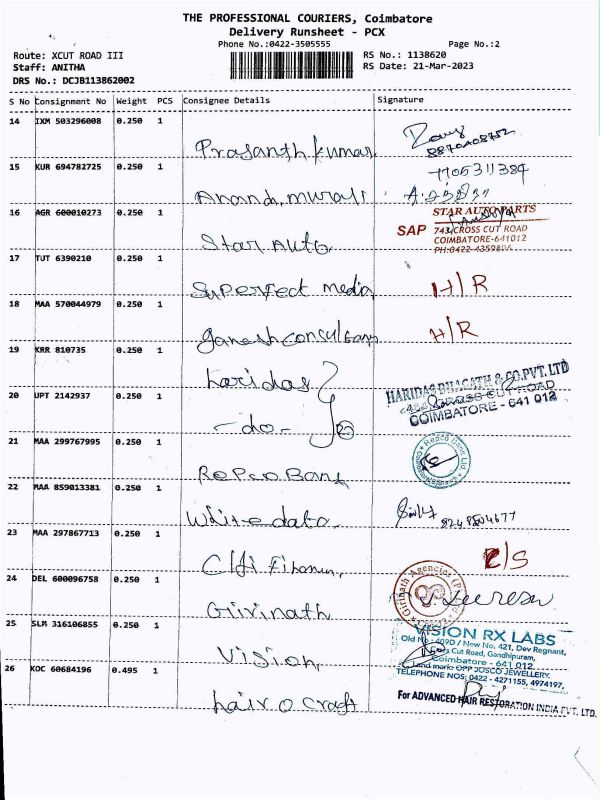 THE PROFESSIONAL COURIERS, Coimbatore
Delivery Runsheet - PCX
Phone No.:0422-3505555
Page No.:2
Route: XCUT ROAD III
RS No.: 1138620
Staff: ANITHA
RS Date: 21-Mar-2023
DRS No.: DCJB113862002
S No Consignment No Weight PCS Consignee Details Signature
14 IXM 503296008 0.250 1
Prasanth kumar
15 KUR 694782725 0.250 1
7705311384
Anand murali
16 AGR 600010273 0.250 1
STAR AUTO PARTS
SAP 743/CROSS CUT ROAD
COIMBATORE-641012
Star Auto
17 TUT 6390210 0.250 1
Superfect media H/R
18 MAA 570044979 0.250 1
H/R
19 KRR 810735 0.250 1
haridas
20 UPT 2142937 0.250 1
HARIDAS BHAGATH & CO.PVT.LTD
CROSS CUT ROAD
COIMBATORE - 641 012
-do-
21 MAA 299767995 0.250 1
Repco Bank Ltd
Repco Bank
22 MAA 859013381 0.250 1
White data
23 MAA 297867713 0.250 1
24 DEL 600096758 0.250 1
Girinath Agencies
Girinath
25 SLM 316106855 0.250 1
VISION RX LABS
Old No : 409D / New No. 421, Dev Regnant,
Cross Cut Road, Gandhipuram,
Coimbatore - 641 012
Land mark: OPP JOSCO JEWELLERY.
TELEPHONE NOS: 0422 - 4271155, 4974197,
Vision
26 KOC 60684196 0.495 1
For ADVANCED HAIR RESTORATION INDIA PVT. LTD.
hair o craft